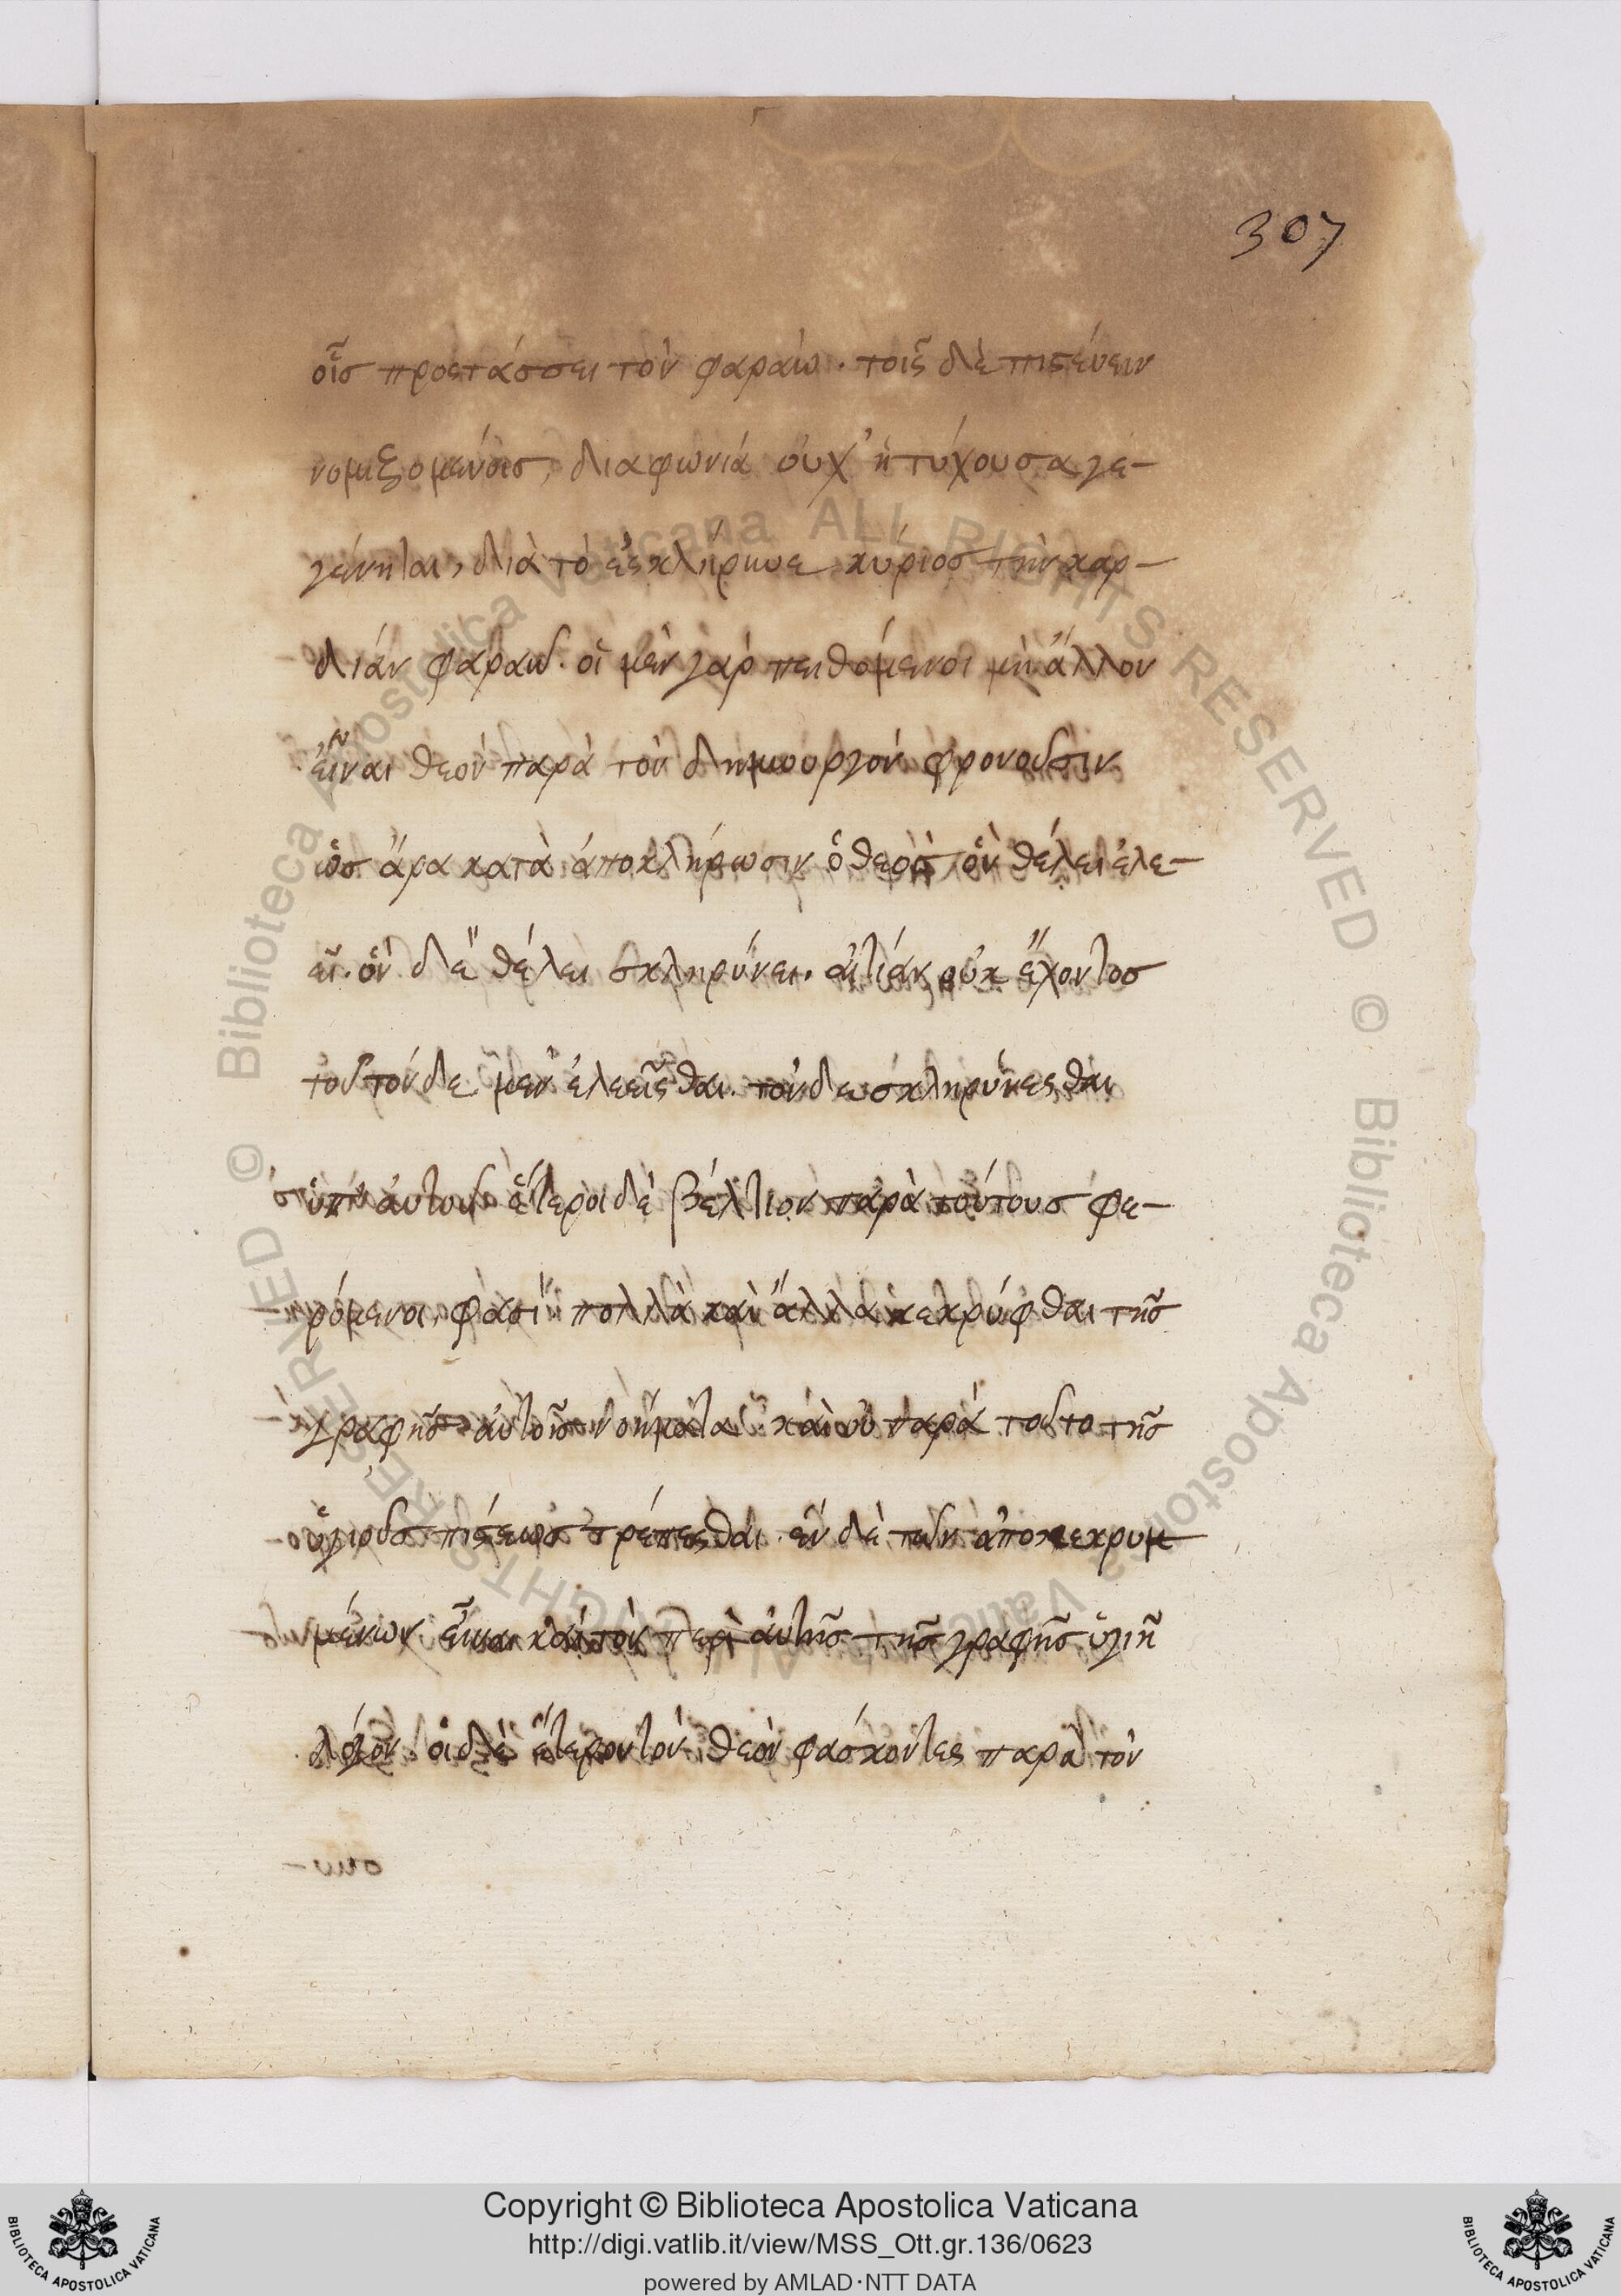 307
οἷσ προστάσσει τὸν φαραὼ. τοῖς δὲ πιστέυειν
νομιζομένοισ, διαφωνία ὀυχ' ἡ τύχουσα γε-
γένηται, διὰ τὸ ἐσκλήρυνε κύριοσ τὴν καρ-
δίαν φαραώ. οἱ μὲν γὰρ πειθόμενοι μὴ ἄλλον
εἶναι θεὸν παρὰ τὸν δημιουργὸν φρονοῦσιν
ὡσ ἄρα κατὰ ἀποκλήρωσιν ὁ θεὸσ ὃν θέλει ἐλε-
εῖ. ὃν δὲ θέλει σκληρύνει. αἰτίαν οὐκ ἔχοντοσ
τοῦ τόνδε μὲν ἐλεεῖσθαι. τόνδε σκληρύνεσθαι
ὑπ' ἀυτοῦ ἕτεροι δὲ βέλτιον παρὰ τούτουσ φε-
ρόμενοι, φασὶ πολλὰ καὶ ἄλλα κεκρύφθαι τῆσ
γραφῆσ ἀυτοῖσ νοήματα. καὶ οὐ παρὰ τοῦτο τῆσ
ὑγιοῦσ πίστεωσ τρέπεσθαι. ἓν δὲ τῶν ἀποκεκρυμ-
μένων εἶναι καὶ τὸν περὶ ἀυτῆσ τῆσ γραφῆσ ὑγιῆ
λόγον. οἱ δὲ ἕτερον τὸν θεὸν φάσκοντες παρὰ τὸν
Copyright © Biblioteca Apostolica Vaticana
http://digi.vatlib.it/view/MSS_Ott.gr.136/0623
powered by AMLAD·NTT DATA
BIBLIOTECA APOSTOLICA VATICANA
BIBLIOTECA APOSTOLICA VATICANA
© Biblioteca Apostolica Vaticana ALL RIGHTS RESERVED © Biblioteca Apostolica Vaticana ALL RIGHTS RESERVED